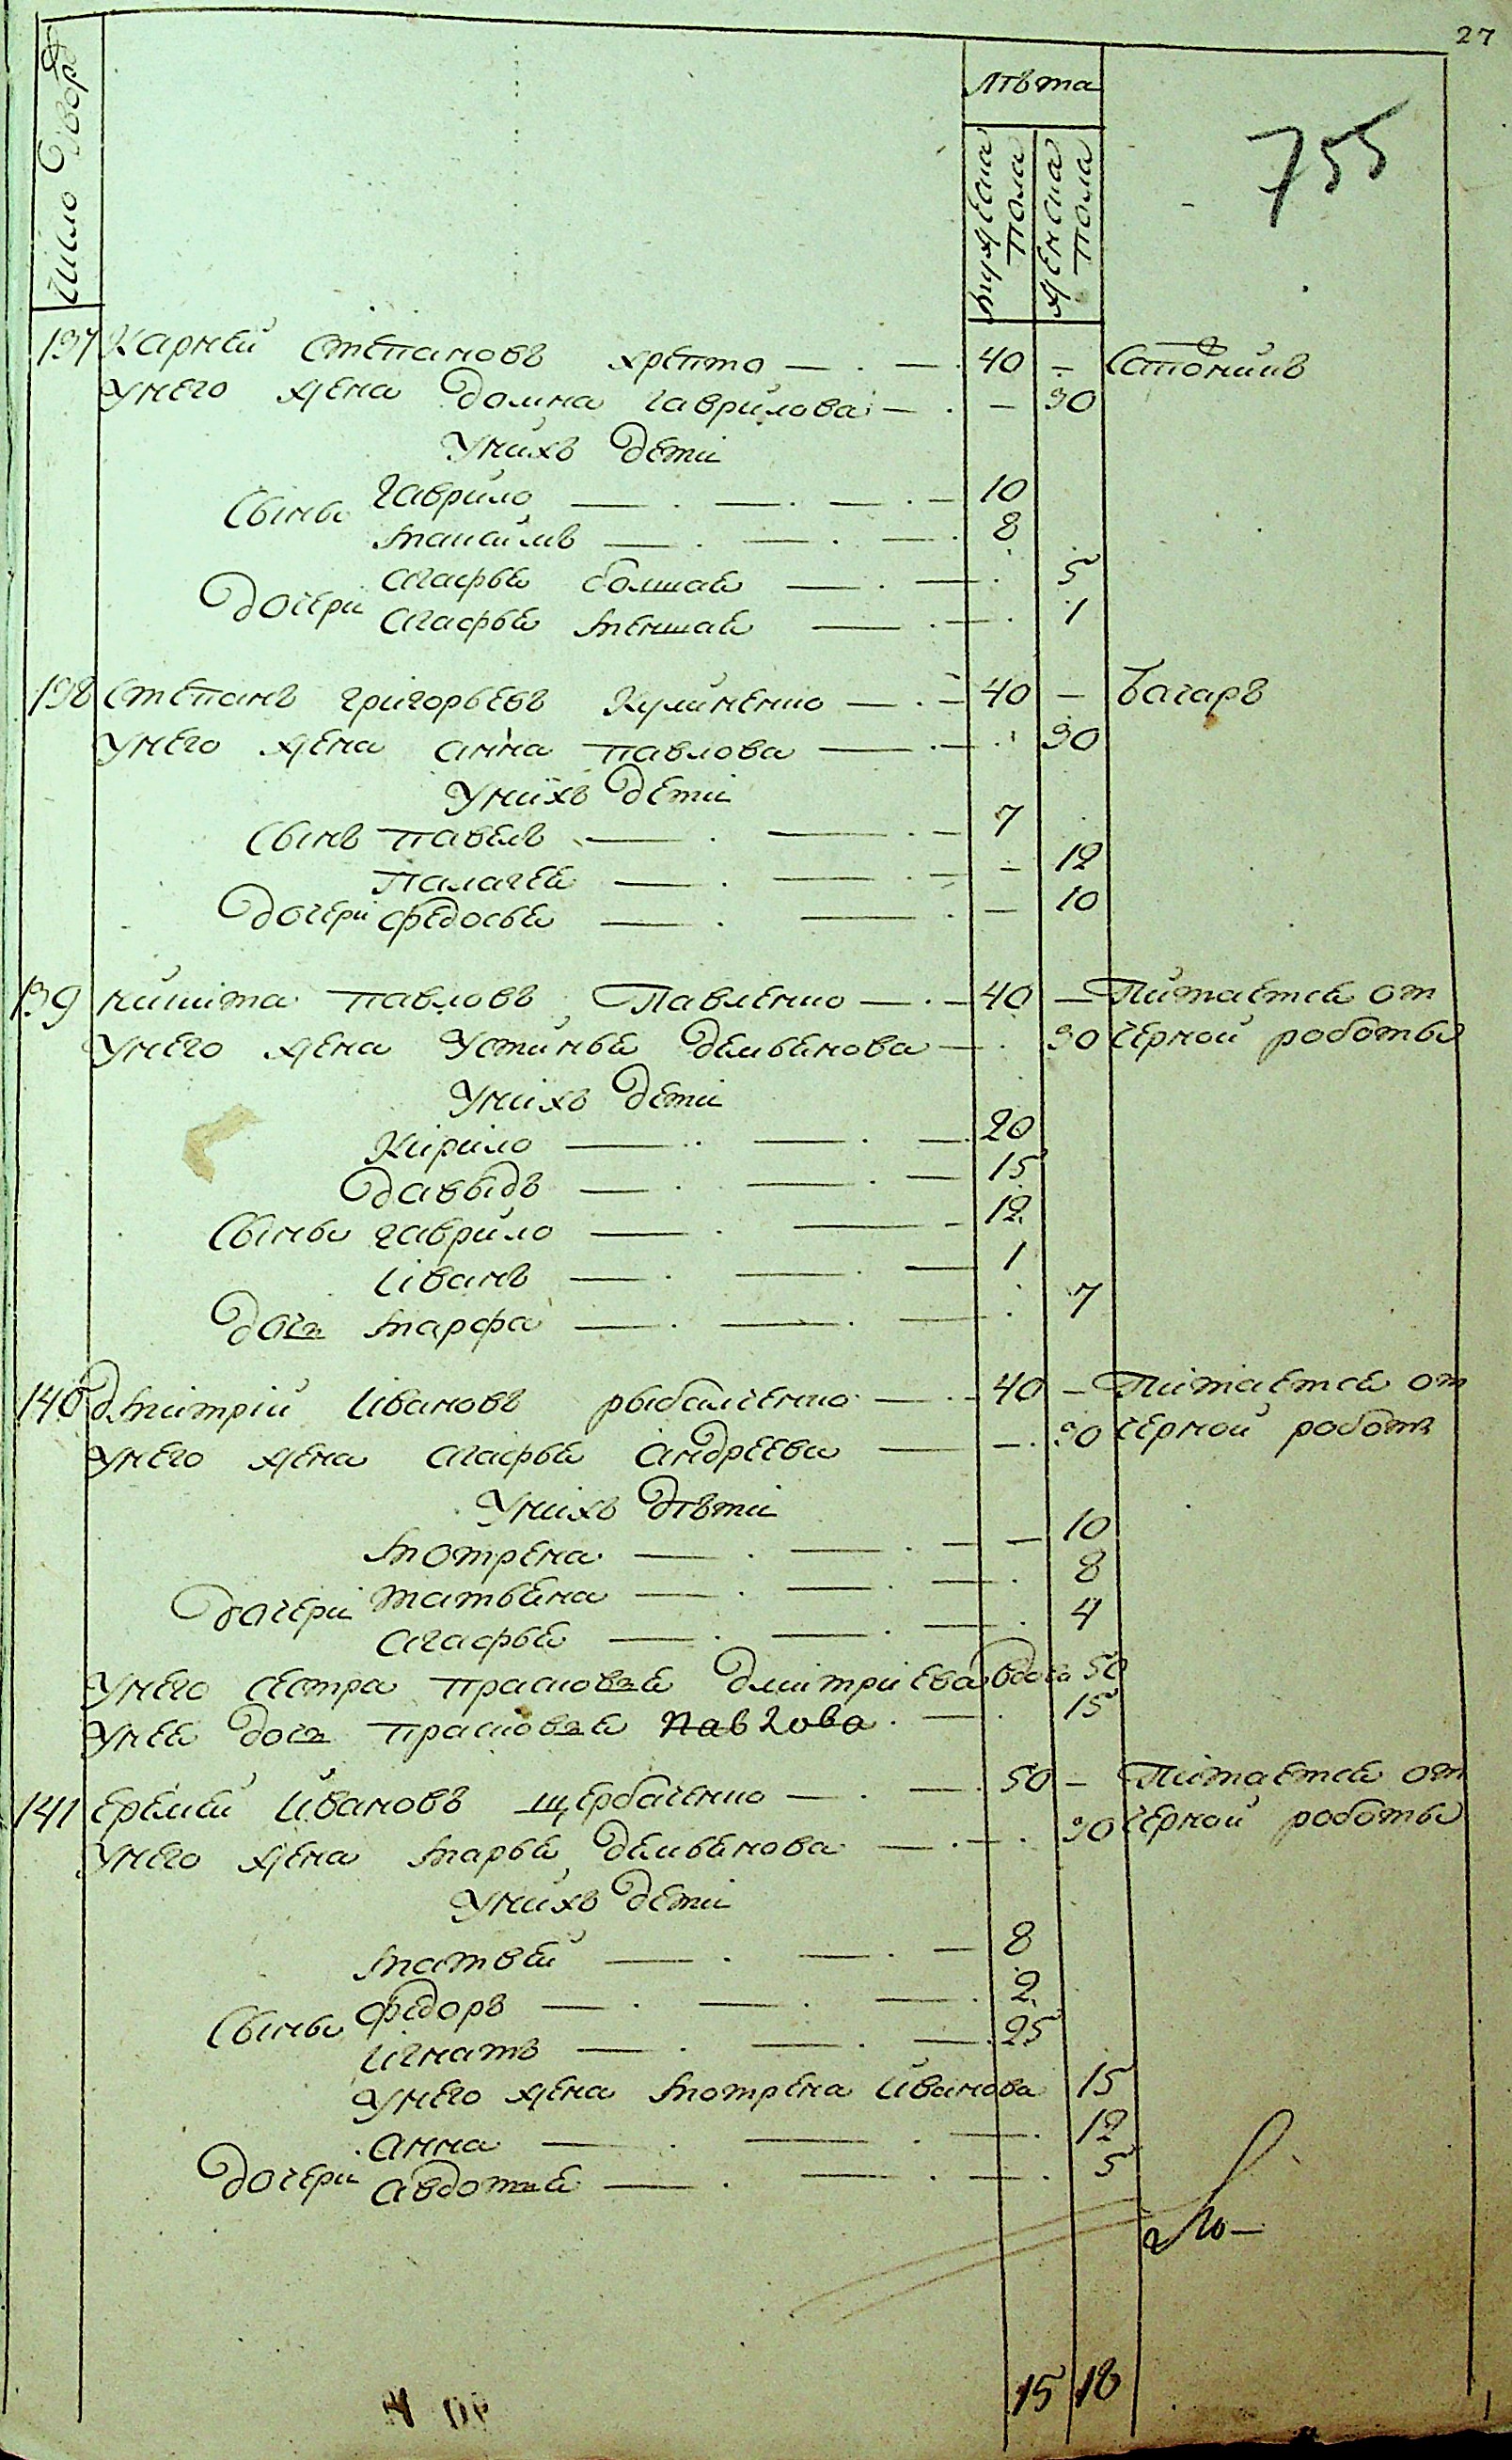 27
755
Число Двор
Лѣта
мужеска пола
женска пола
137 Карнеи Степановъ хрепто 40 –
У него жена домна гаврилова – 30
У нихъ дети
Сыны гаврило 10
максимъ 8
дочери агафья болшая 5
агафья меншая 1
138 Степанъ григорьевъ Кулиненко 40 – багаръ
У него жена анна павлова 30
У нихъ дети
Сынъ павелъ 7
палагея – 12
дочери федосья – 10
139 никита павловъ Павленко 40 – Питается от
У него жена Устинья демьянова 30 черной роботы
У нихъ дети
Кирило 20
давыдъ 15
Сыны гаврило 12
иванъ 1
дочь марфа 7
140 дмитрій ивановъ рыбалченко 40 – Питается от
У него жена агафья андреева – 30 черной работы
У нихъ дѣти
мотрена – 10
дочери татьяна 8
агафья 4
У него сестра прасковья дмитріева вдова 50
У нея дочь прасковья павлова 15
141 еремеи ивановъ щербаченко 50 – Питается от
У него жена марья демьянова 30 черной роботы
У нихъ дети
матвеи 8
Сыны федоръ 2
игнатъ 25
У него жена мотрена иванова 15
анна 12
дочери авдотья 5
15 18